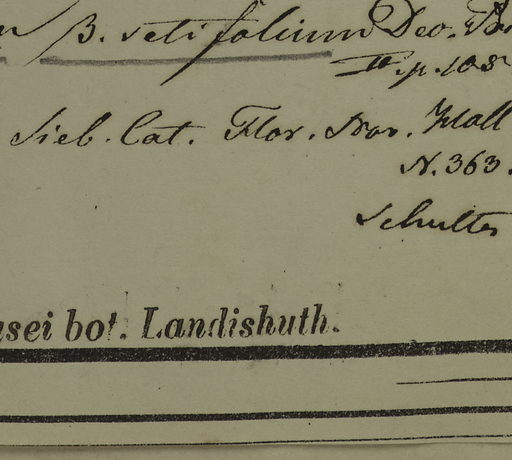 β. setifolium Deo.
II. p. 108
Sieb. Cat. Flor. Nov. Holl
N. 363.
Schultes
sei bot. Landishuth.